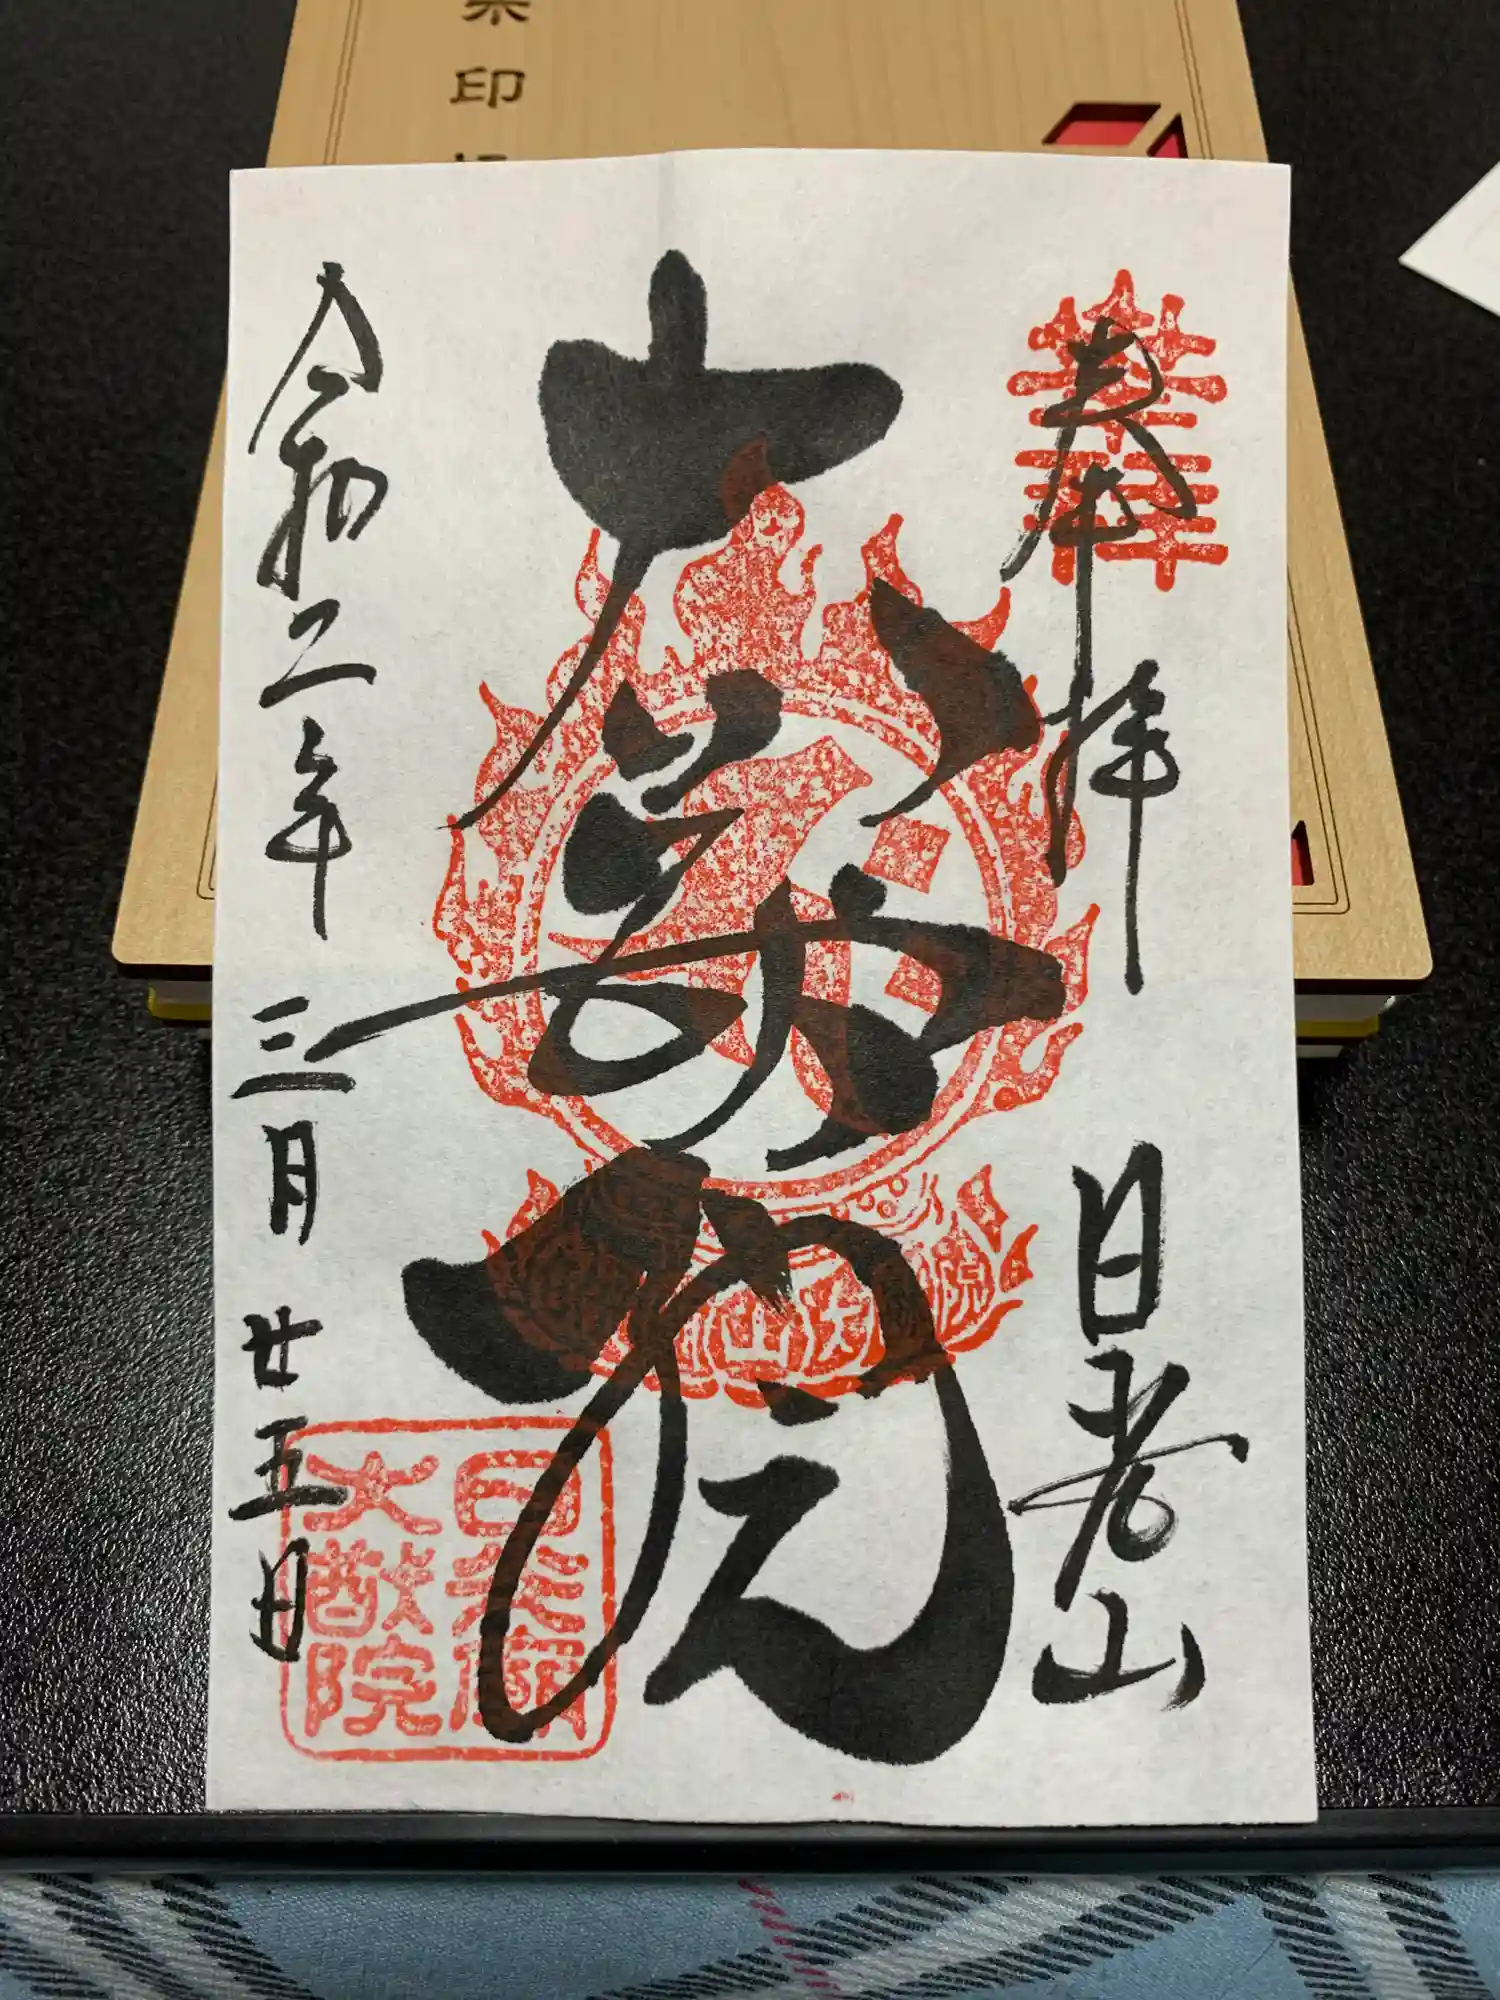 印
奉拝
日光山
大猷院
令和二年三月廿五日
日光廟
大猷院